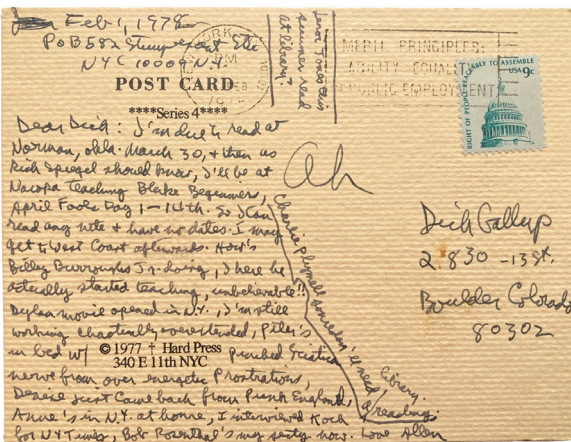 Feb 1, 1978
PoB 582 Stuyvesant Sta
NYC 10009 N.Y.
POST CARD
****Series 4****
Dear Dick: I'm due to read at
Norman, Okla. March 30, & then as
Rich Spiegel should know, I'll be at
Naropa Teaching Blake Beginners,
April Fools Day 1-14th. So I can
read any nite & have no dates. I may
get to West Coast afterwards. How's
Billy Burroughs Jr. doing, I hear he
actually started teaching, unbelievable!!
Dylan movie opened in N.Y., I'm still
working chaotically overextended, Peter's
in bed w/ pinched Sciatic
© 1977 † Hard Press
340 E 11th NYC
nerve from over energetic Prostrations,
Denise just came back from Punk England,
Anne's in N.Y. at home, I interviewed Koch
for NY Times, Bob Rosenthal's my secty now. Love Allen
Charlie Plymell
need a reading.
library.
summer read
at library?
Ah
MERIT PRINCIPLES:
ABILITY EQUALITY
PUBLIC EMPLOYMENT
RIGHT OF PEOPLE PEACEABLY TO ASSEMBLE
USA 9c
Dick Gallup
2830 - 13 St.
Boulder Colorado
80302